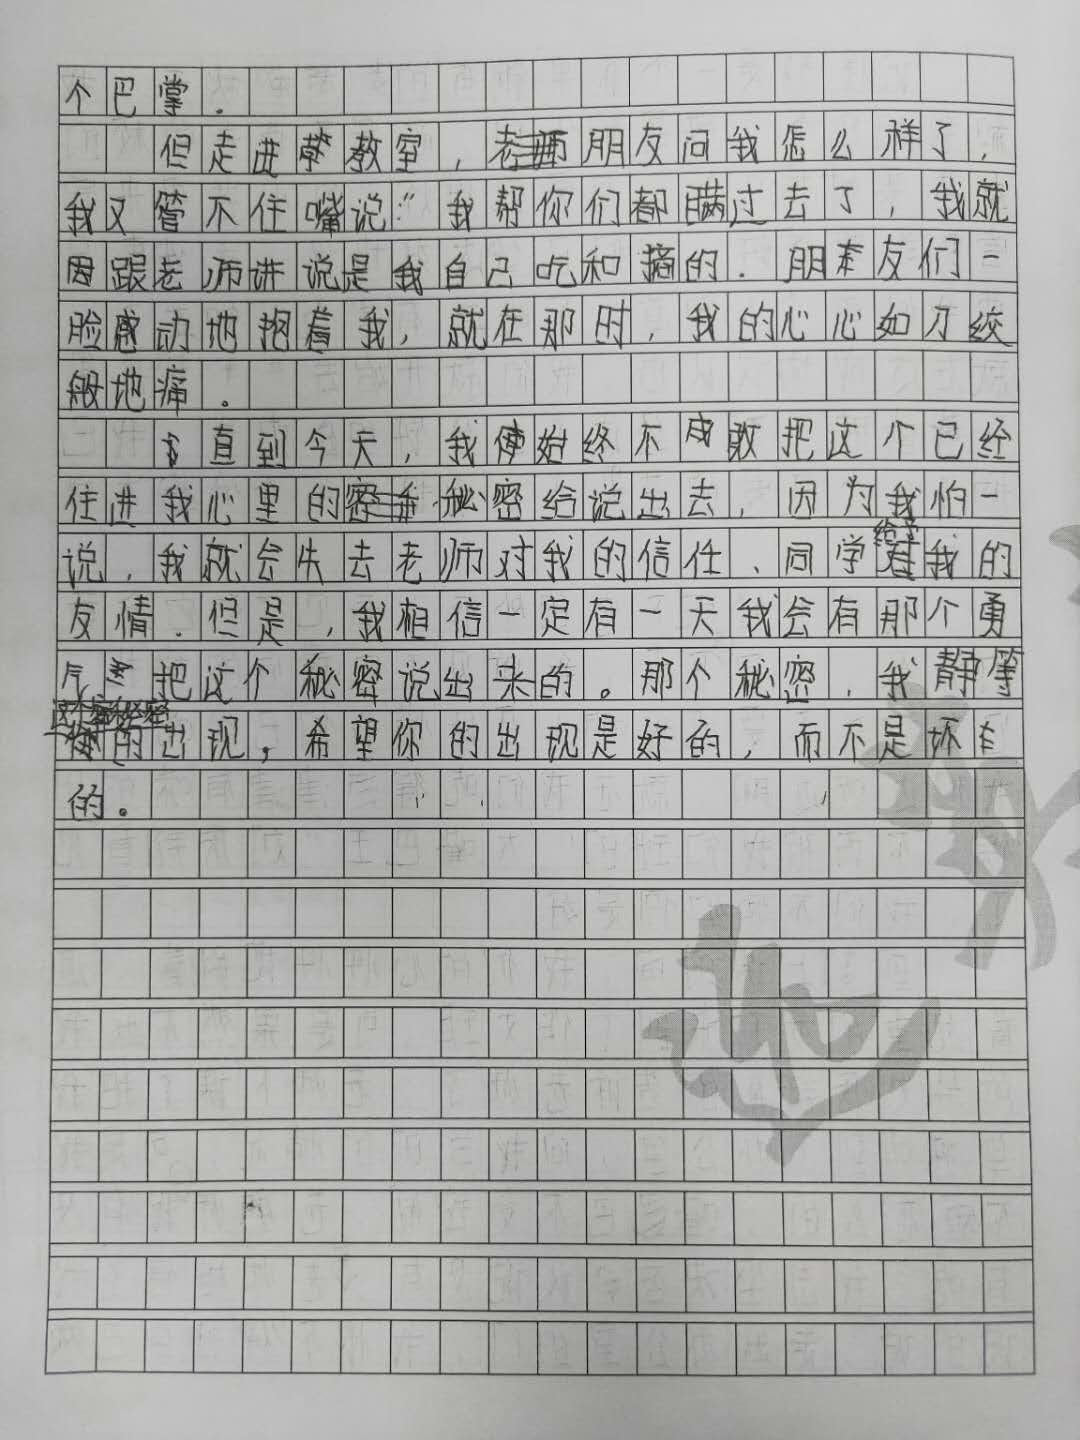 个巴掌.
但走进教室，朋友问我怎么样了，
我又管不住嘴说："我帮你们都瞒过去了，我就
因跟老师讲说是我自己吃和摘的.朋友们一
脸感动地抱着我，就在那时，我的心心如刀绞
般地痛。
直到今天，我使始终不成敢把这个已经
住进我心里的秘密给说出去，因为我怕一
说，我就会失去老师对我的信任、同学给予我的
友情.但是，我相信一定有一天我会有那个勇
气把这个秘密说出来的。那个秘密，我静等
这个秘密
的出现，希望你的出现是好的，而不是坏
的。